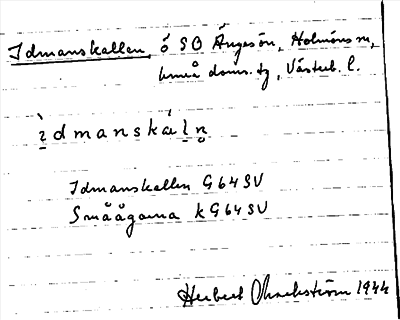 Idmanskallen, ö SO Ängesön, Holmöns sn,
Umeå doms. tg, Västerb. l.
ìdmanskáln̥
Idmanskallen G64SV
Småågarna kG64SV
Herbert Ohrnekström 1944